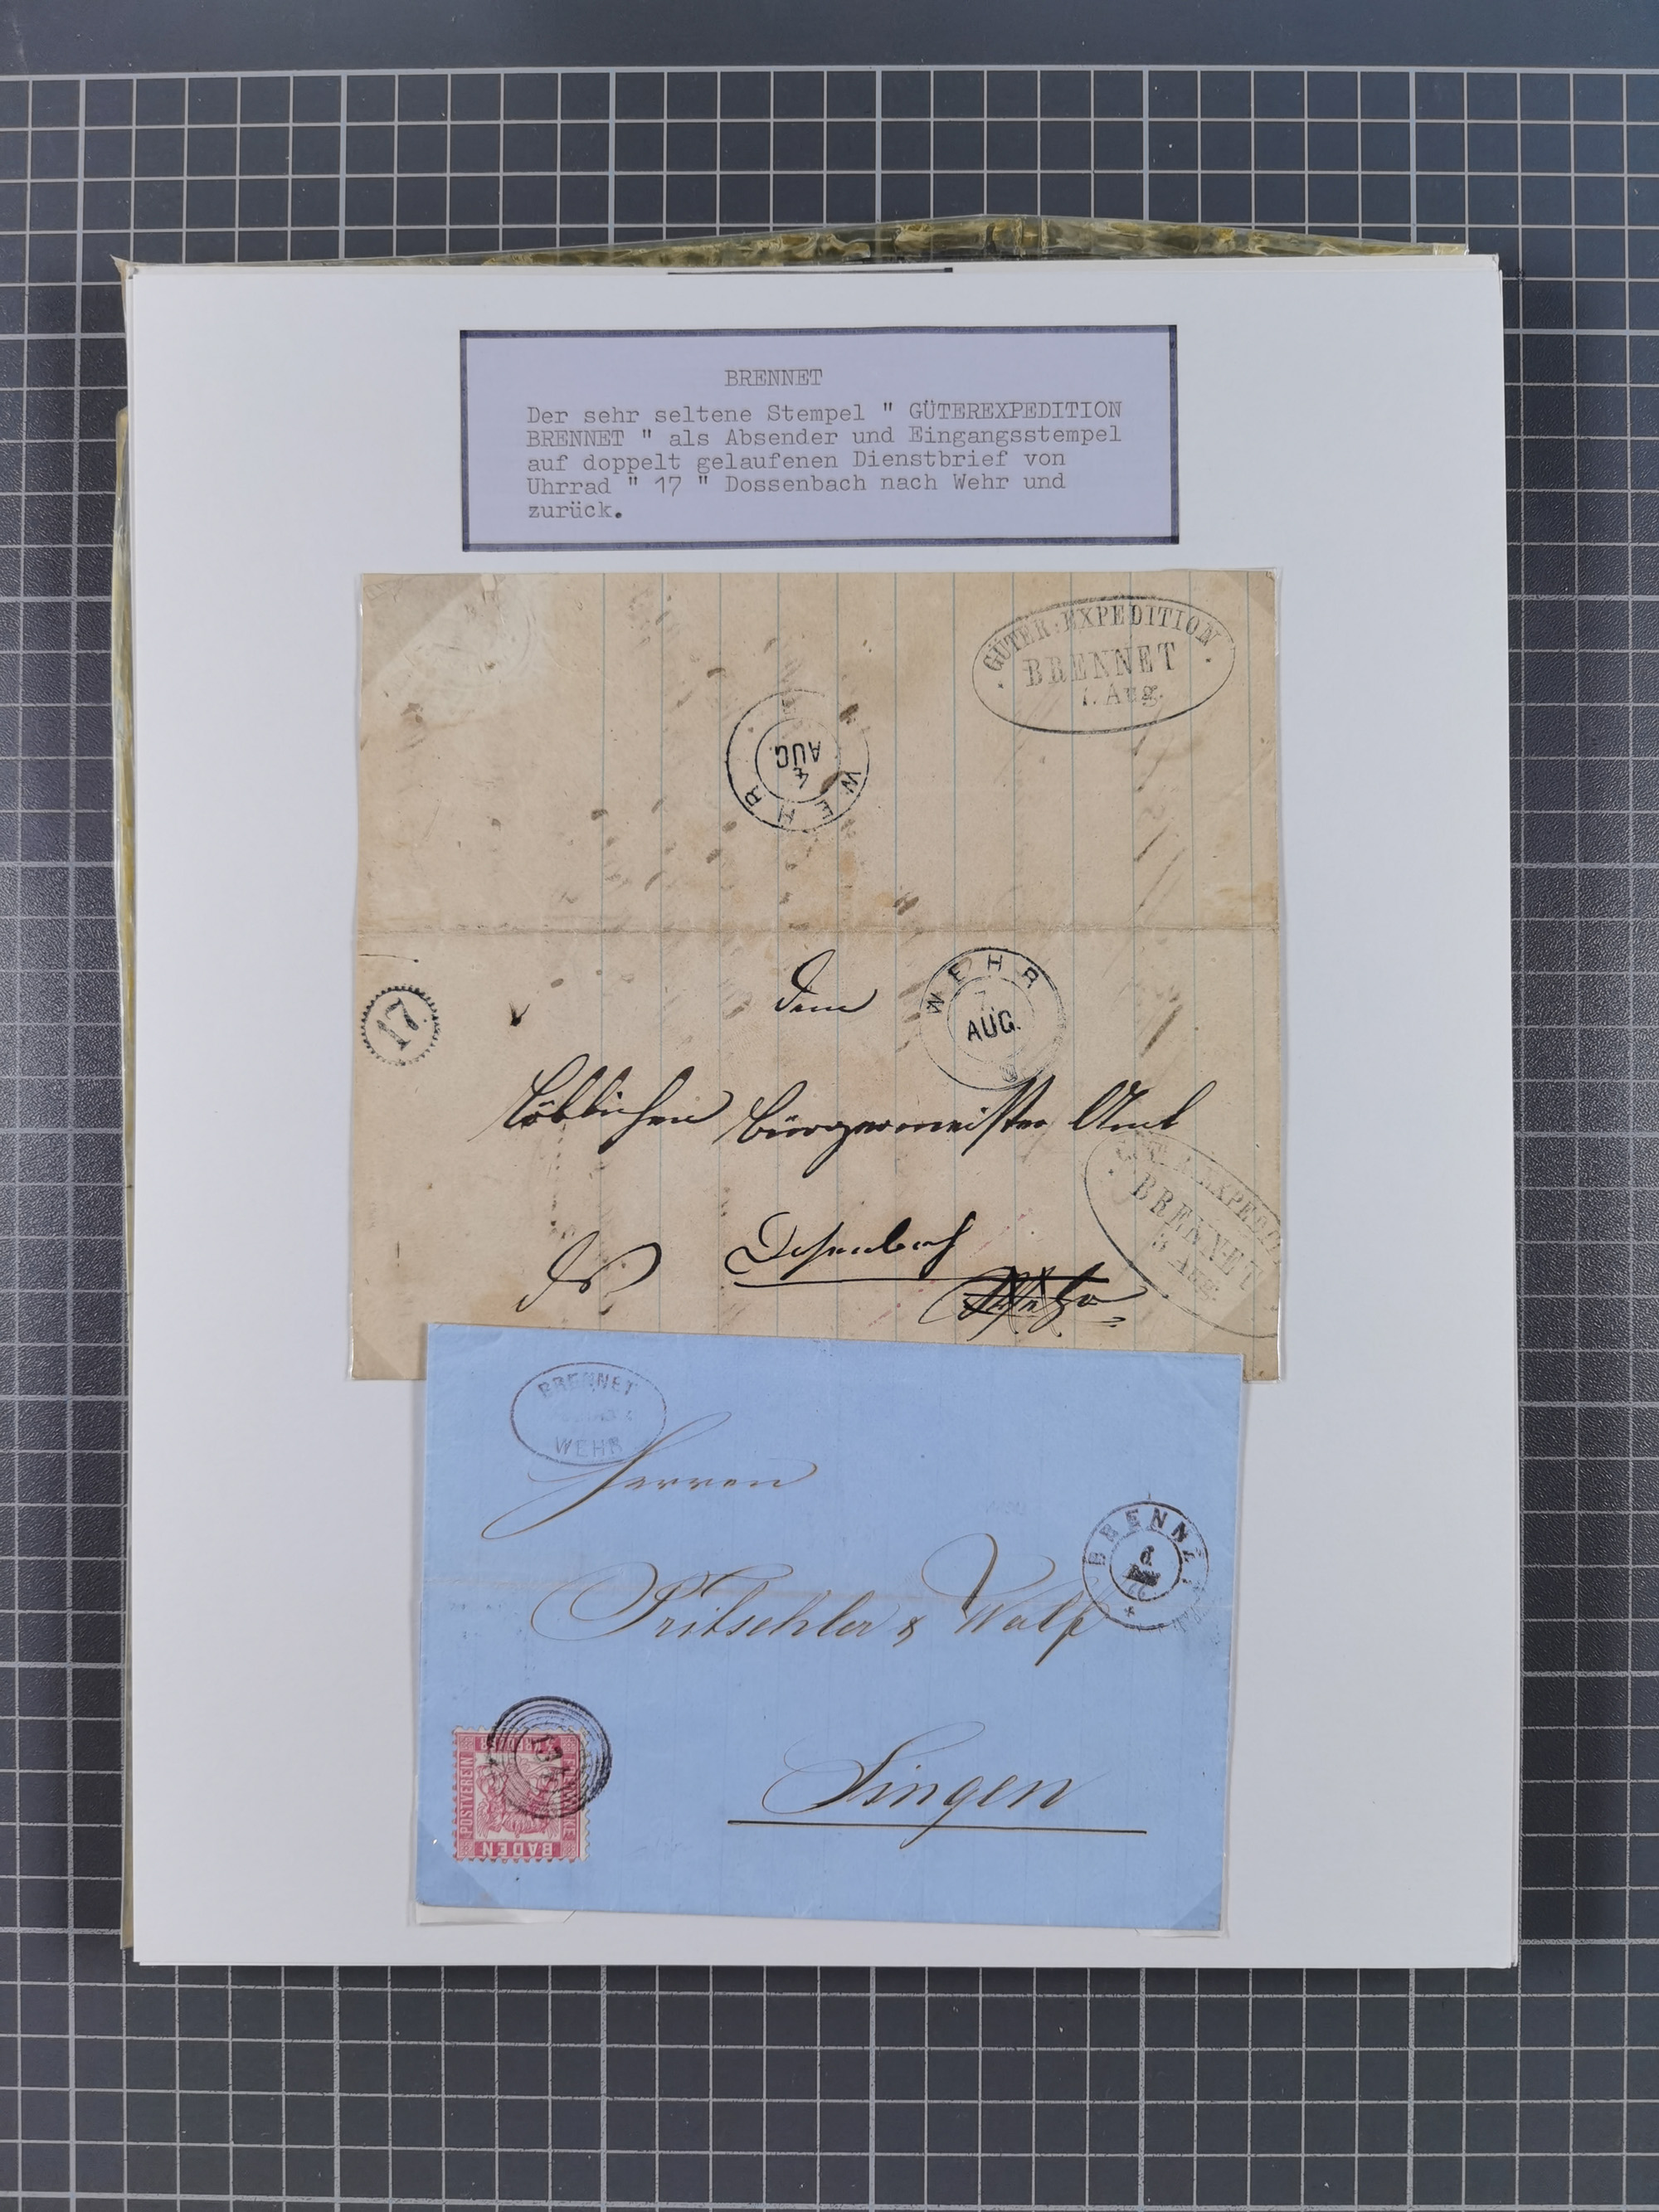 BRENNET
Der sehr seltene Stempel " GÜTEREXPEDITION
BRENNET " als Absender und Eingangsstempel
auf doppelt gelaufenen Dienstbrief von
Uhrrad " 17 " Dossenbach nach Wehr und
zurück.
GÜTER-EXPEDITION
BRENNET
Aug.
WEHR
4
AUG.
17
Dem
WEHR
AUG.
Löblichen Bürgermeister Amt
EXPEDIT
BRENNET
Aug.
BRENNET
WEHR
Herren
BRENN
6
Pritschler & Wolf
Singen
POSTVEREIN
FREIMARKE
BADEN